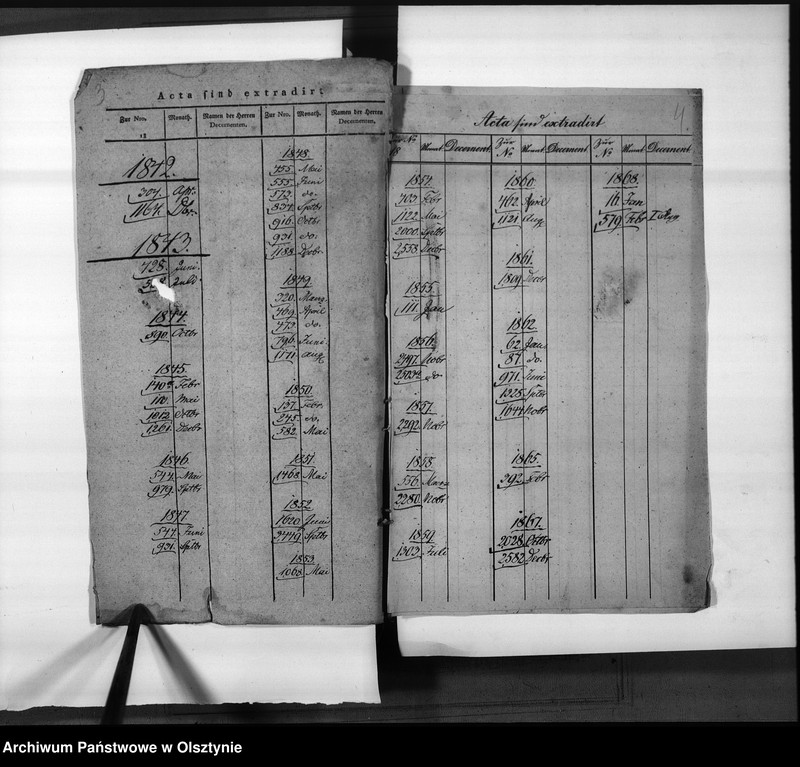 3
Acta sind extradirt
Zur Nro. Monath. Namen der Herren Decernenten. Zur Nro. Monath. Namen der Herren Decernenten.
18
1842.
304. Apr.
1164. Dbr.
1843.
425. Juni.
Juli
1844.
890. Octbr
1845.
140. Febr
110. Mai
1012. Octbr
1261. Decbr
1846.
544. Mai
979. Septbr
1847
547. Juni
931. Septbr
1848.
455. Mai
555. Juni
573. do.
834. Septbr
916. Octbr
931. do.
1188. Decbr.
1849.
320. Maerz
409. April
473. do.
796. Juni.
1171. aug
1850.
137. Febr.
245. do.
582. Mai
1851.
1468. Mai
1852
1620. Juni
2449. Septbr
1853
1068. Mai
4
Acta sind extradirt
Zur No Monat Decernent Zur No Monat Decernent Zur No Monat Decernent
18
1854.
403. Febr
1122. Mai
2000. Septbr
2558. Decbr
1855.
111. Jan
1856.
2497. Novbr
do
1857.
2292. Novbr
1858
556. Maerz
2280. Novbr
1859
1303. Juli
1860.
462. April
1121. Aug
1861.
1809. Decbr
1862.
62. Jan
87. do.
971. Juni
1325. Septbr
1644. Novbr
1865.
292. Febr
1867.
2028. Octbr
2582. Decbr
1868.
16. Jan
579. Febr
Archiwum Państwowe w Olsztynie